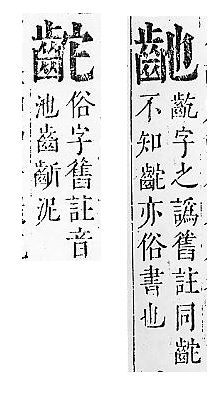 字之譌舊註同
不知亦俗書也
俗字舊註音
池齒齗泥